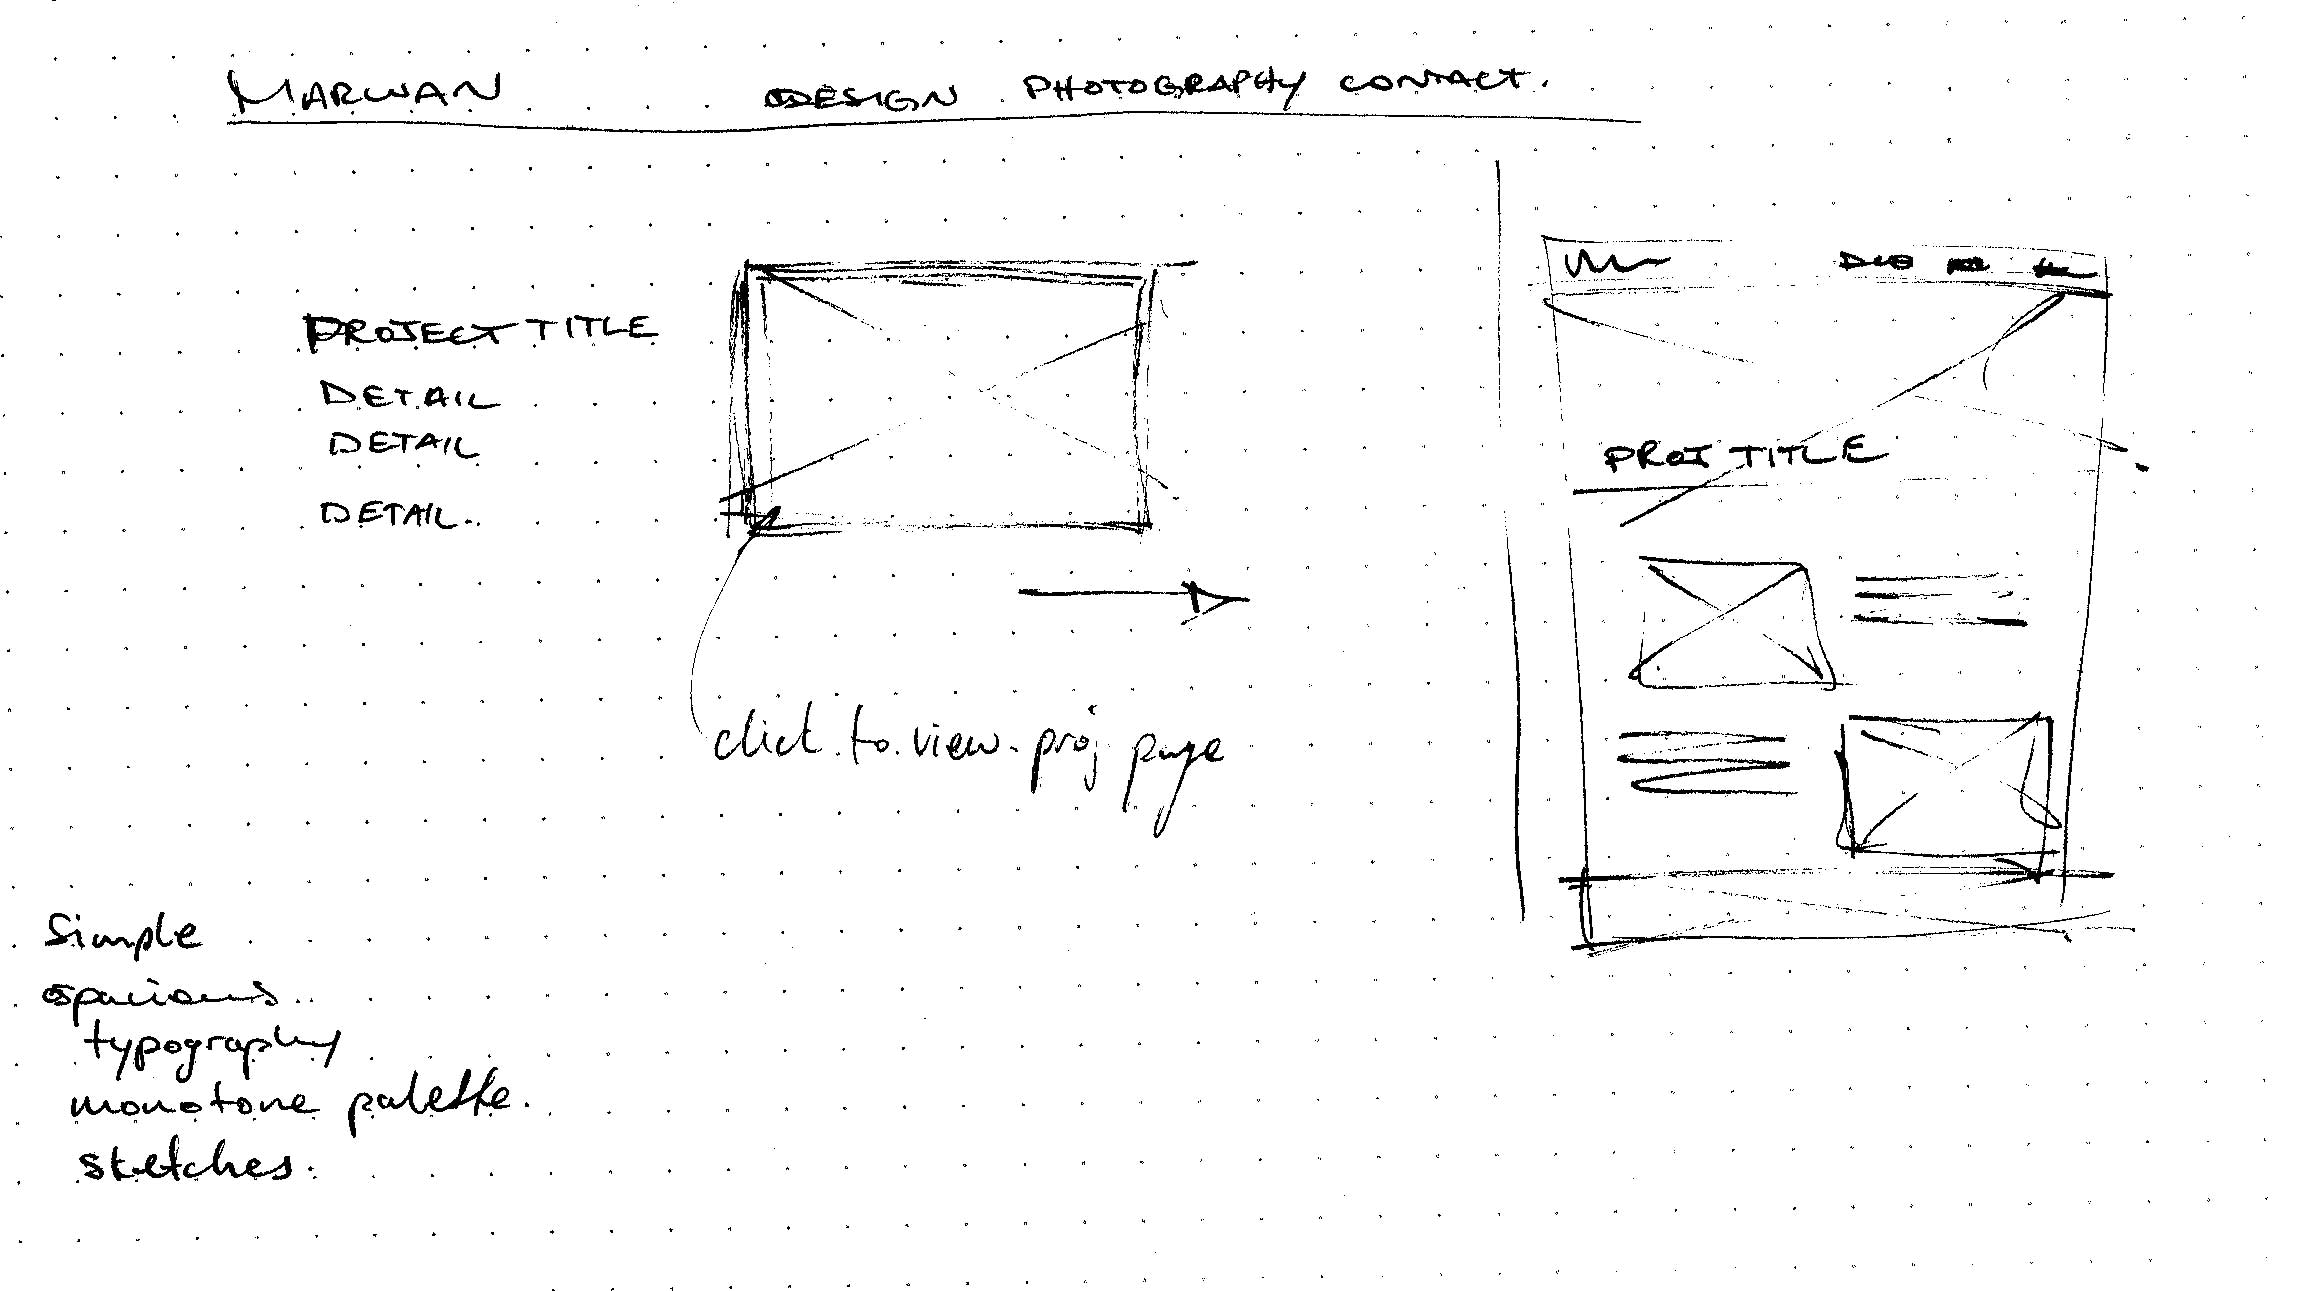 MARWAN DESIGN PHOTOGRAPHY CONTACT.
PROJECT TITLE
DETAIL
DETAIL
DETAIL..
click to view proj page
PROJ TITLE
Simple
spacious..
typography
monotone palette.
sketches.